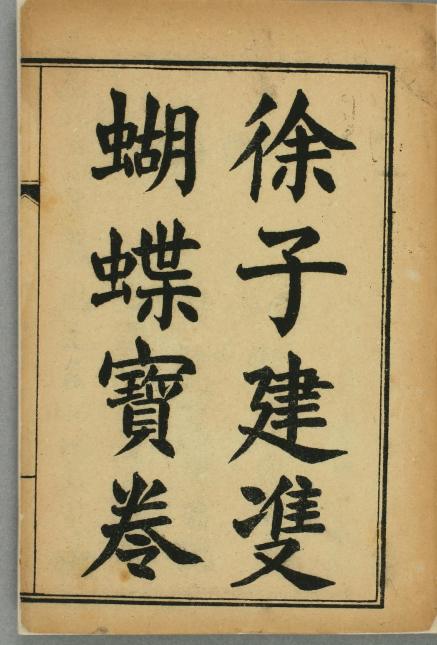 徐子建䨇
蝴蝶寶卷